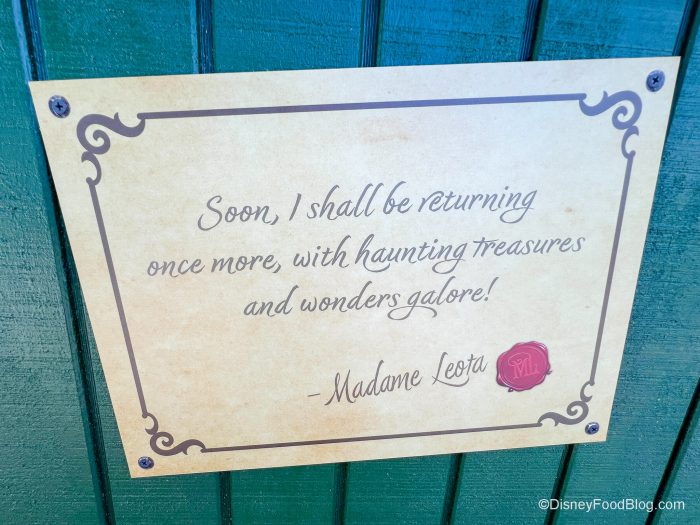 Soon, I shall be returning
once more, with haunting treasures
and wonders galore!
- Madame Leota
ML
©DisneyFoodBlog.com